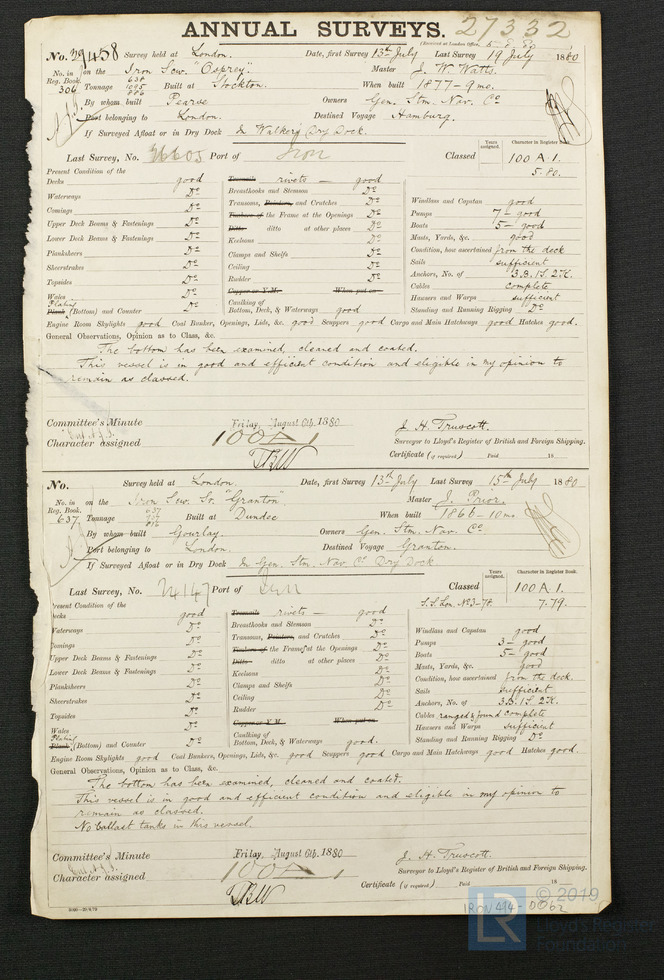 ANNUAL SURVEYS. 27332
(Received at London Office, 5.8.80)
No. 29458 Survey held at London. Date, first Survey 13th July Last Survey 19 July 1880
No. in Reg. Book. 306 on the Iron Scw. "Osprey" Master J. W. Watts.
Tonnage 638 1095 886 Built at Stockton. When built 1877 - 9 mo.
By whom built Pearse Owners Gen. Stm. Nav. Co
Port belonging to London. Destined Voyage Hamburg.
If Surveyed Afloat or in Dry Dock In Walker's Dry Dock.
Last Survey, No. 26605 Port of Lon Classed Years assigned. Character in Register Book. 100 A 1.
5.80.
Present Condition of the
Decks good Treenails rivets — good
Waterways Do Breasthooks and Stemson Do Windlass and Capstan good
Comings Do Transoms, Pointers, and Crutches Do Pumps 7 - good
Upper Deck Beams & Fastenings Do Timbers of the Frame at the Openings Do Boats 5 - good
Lower Deck Beams & Fastenings Do Ditto ditto at other places Do Masts, Yards, &c. good
Planksheers Do Keelsons Do Condition, how ascertained from the deck
Sheerstrakes Do Clamps and Shelfs Do Sails sufficient
Topsides Do Ceiling Do Anchors, No. of 3.B. 1S. 2K.
Wales Do Rudder Do Cables complete
Copper or Y.M. When put on Hawsers and Warps sufficient
Plating Plank (Bottom) and Counter Do Caulking of Bottom, Deck, & Waterways good Standing and Running Rigging Do
Engine Room Skylights good Coal Bunker, Openings, Lids, &c. good Scuppers good Cargo and Main Hatchways good Hatches good.
General Observations, Opinion as to Class, &c.
The bottom has been examined, cleaned and coated.
This vessel is in good and efficient condition and eligible in my opinion to
remain as classed.
Committee's Minute Friday, August 6th, 1880
J. H. Truscott.
Character assigned 100 A 1 Surveyor to Lloyd's Register of British and Foreign Shipping.
Certificate (if required) Paid 18
No. Survey held at London. Date, first Survey 13th July Last Survey 15th July 1880
No. in Reg. Book. 637 on the Iron Scw. Sr. "Granton". Master J. Prior.
Tonnage Built at Dundee When built 1866 - 10 mo.
By whom built Gourlay. Owners Gen. Stm. Nav. Co.
Port belonging to London. Destined Voyage Granton.
If Surveyed Afloat or in Dry Dock In Gen. Stm. Nav. Co Dry Dock
Last Survey, No. 24147 Port of Lon Classed Years assigned. Character in Register Book. 100 A 1.
S.S. Lon. No 3-78. 7.79.
Present Condition of the
Decks good Treenails rivets — good
Waterways Do Breasthooks and Stemson Do Windlass and Capstan good
Comings Do Transoms, Pointers, and Crutches Do Pumps 3 - good
Upper Deck Beams & Fastenings Do Timbers of the Frame at the Openings Do Boats 5 - good
Lower Deck Beams & Fastenings Do Ditto ditto at other places Do Masts, Yards, &c. good
Planksheers Do Keelsons Do Condition, how ascertained from the deck.
Sheerstrakes Do Clamps and Shelfs Do Sails sufficient
Topsides Do Ceiling Do Anchors, No. of 3.B. 1S. 2K.
Wales Do Rudder Do Cables ranged & found complete
Copper or Y.M. When put on Hawsers and Warps sufficient
Plating Plank (Bottom) and Counter Do Caulking of Bottom, Deck, & Waterways good. Standing and Running Rigging Do
Engine Room Skylights good Coal Bunkers, Openings, Lids, &c. good Scuppers good Cargo and Main Hatchways good Hatches good.
General Observations, Opinion as to Class, &c.
The bottom has been examined, cleaned and coated.
This vessel is in good and efficient condition and eligible in my opinion to
remain as classed.
No ballast tanks in this vessel.
Committee's Minute Friday, August 6th, 1880
J. H. Truscott.
Character assigned 100 A 1 Surveyor to Lloyd's Register of British and Foreign Shipping.
Certificate (if required) Paid 18
© 2019
LR
Lloyd's Register
Foundation